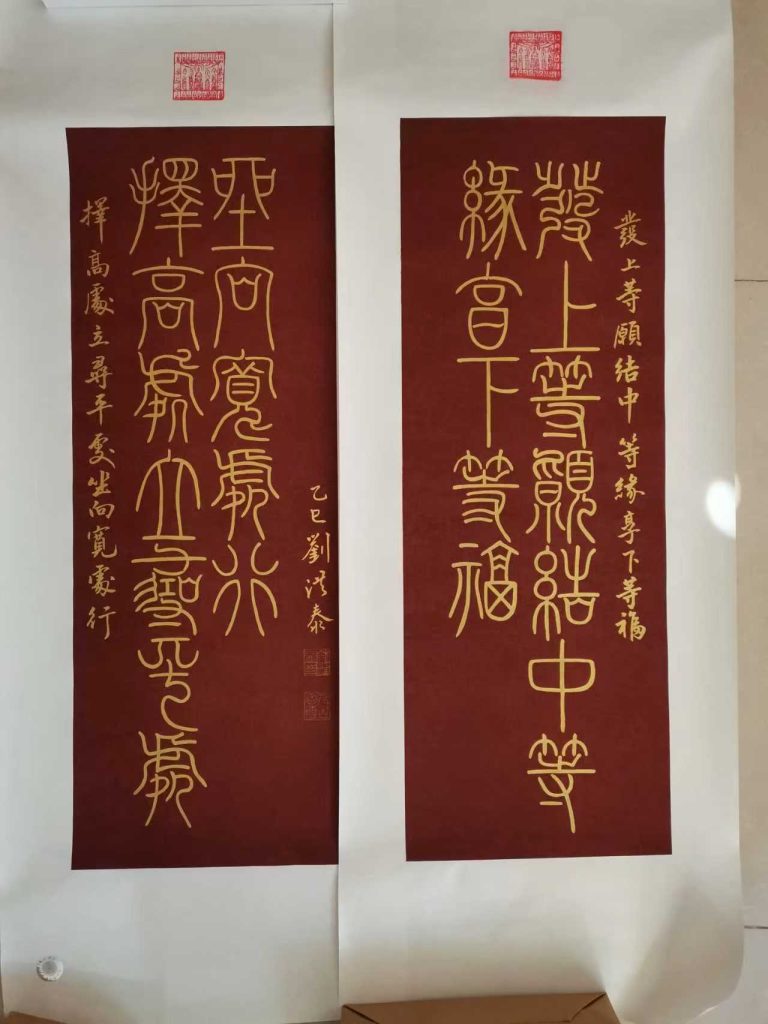 發上等願結中等緣享下等福
發上等願結中等
緣享下等福
擇高處立尋平處坐向寬處行
擇高處立尋平處
坐向寬處行
乙巳劉泰